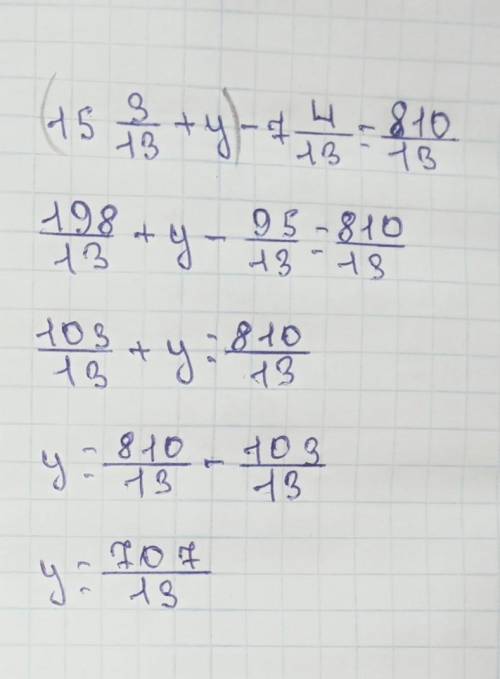 (15 3/13 + y) - 7 4/13 = 810/13
198/13 + y - 95/13 = 810/13
103/13 + y = 810/13
y = 810/13 - 103/13
y = 707/13